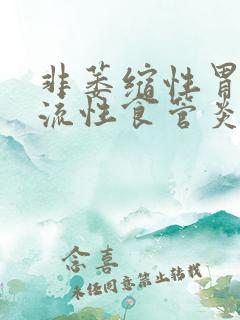 非萎缩性胃
流性食管炎
念喜
未经同意禁止转载